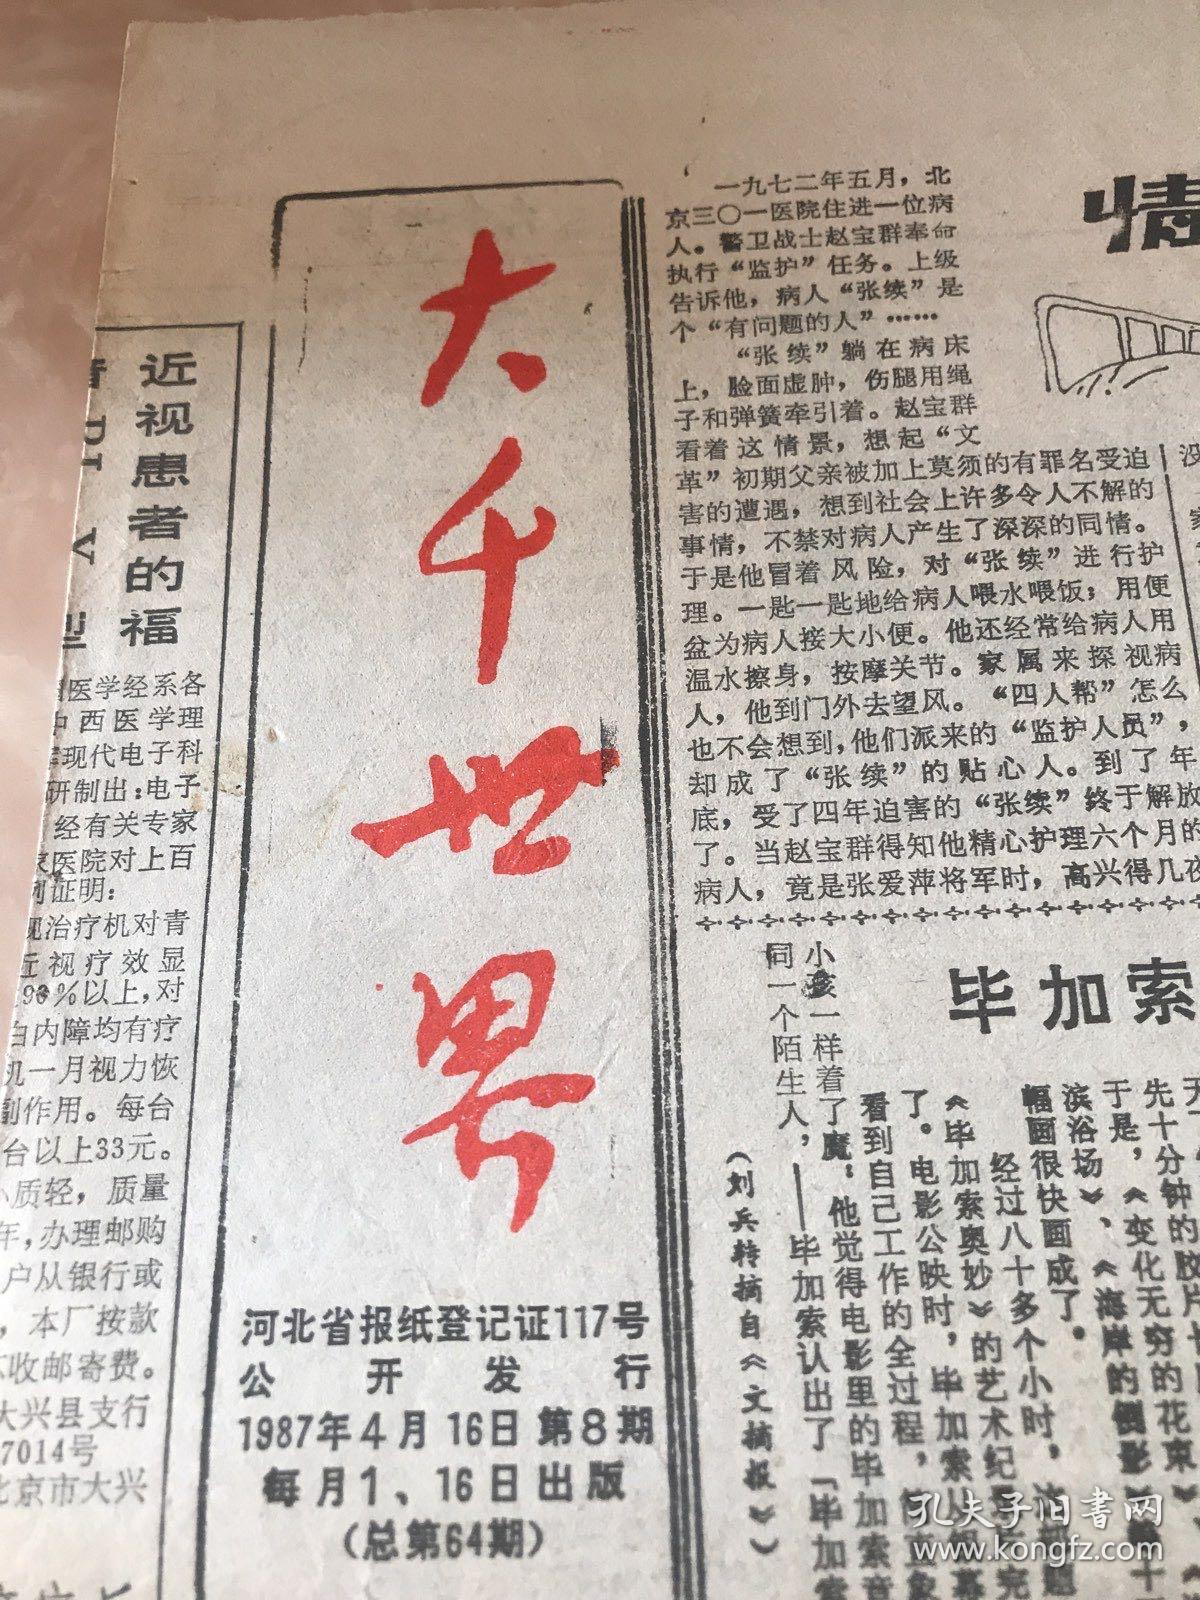 大千世界
河北省报纸登记证117号
公开发行
1987年4月16日第8期
每月1、16日出版
（总第64期）
近视患者的福
医学经系各
中西医学理
现代电子科
研制出：电子
经有关专家
家医院对上百
例证明：
视治疗机对青
近视疗效显
90%以上，对
白内障均有疗
机一月视力恢
副作用。每台
台以上33元。
小质轻，质量
年，办理邮购
户从银行或
，本厂按款
收邮寄费。
大兴县支行
7014号
北京市大兴
情
一九七二年五月，北
京三〇一医院住进一位病
人。警卫战士赵宝群奉命
执行“监护”任务。上级
告诉他，病人“张续”是
个“有问题的人”……
“张续”躺在病床
上，脸面虚肿，伤腿用绳
子和弹簧牵引着。赵宝群
看着这情景，想起“文
革”初期父亲被加上莫须的有罪名受迫
害的遭遇，想到社会上许多令人不解的
事情，不禁对病人产生了深深的同情。
于是他冒着风险，对“张续”进行护
理。一匙一匙地给病人喂水喂饭；用便
盆为病人接大小便。他还经常给病人用
温水擦身，按摩关节。家属来探视病
人，他到门外去望风。“四人帮”怎么
也不会想到，他们派来的“监护人员”，
却成了“张续”的贴心人。到了年
底，受了四年迫害的“张续”终于解放
了。当赵宝群得知他精心护理六个月的
病人，竟是张爱萍将军时，高兴得几夜
没
毕加索
先十分钟的胶片
于是，《变化无穷的花束》
滨浴场》、《海岸的倒影》
幅画很快画成了。
经过八十多个小时，
《毕加索奥妙》的艺术纪
了。电影公映时，毕加索从银幕
看到自己工作的全过程，
小孩一样着了魔：他觉得电影里的毕加索
同一个陌生人，——毕加索认出了「毕加
（刘兵转摘自《文摘报》）
孔夫子旧书网
www.kongfz.com